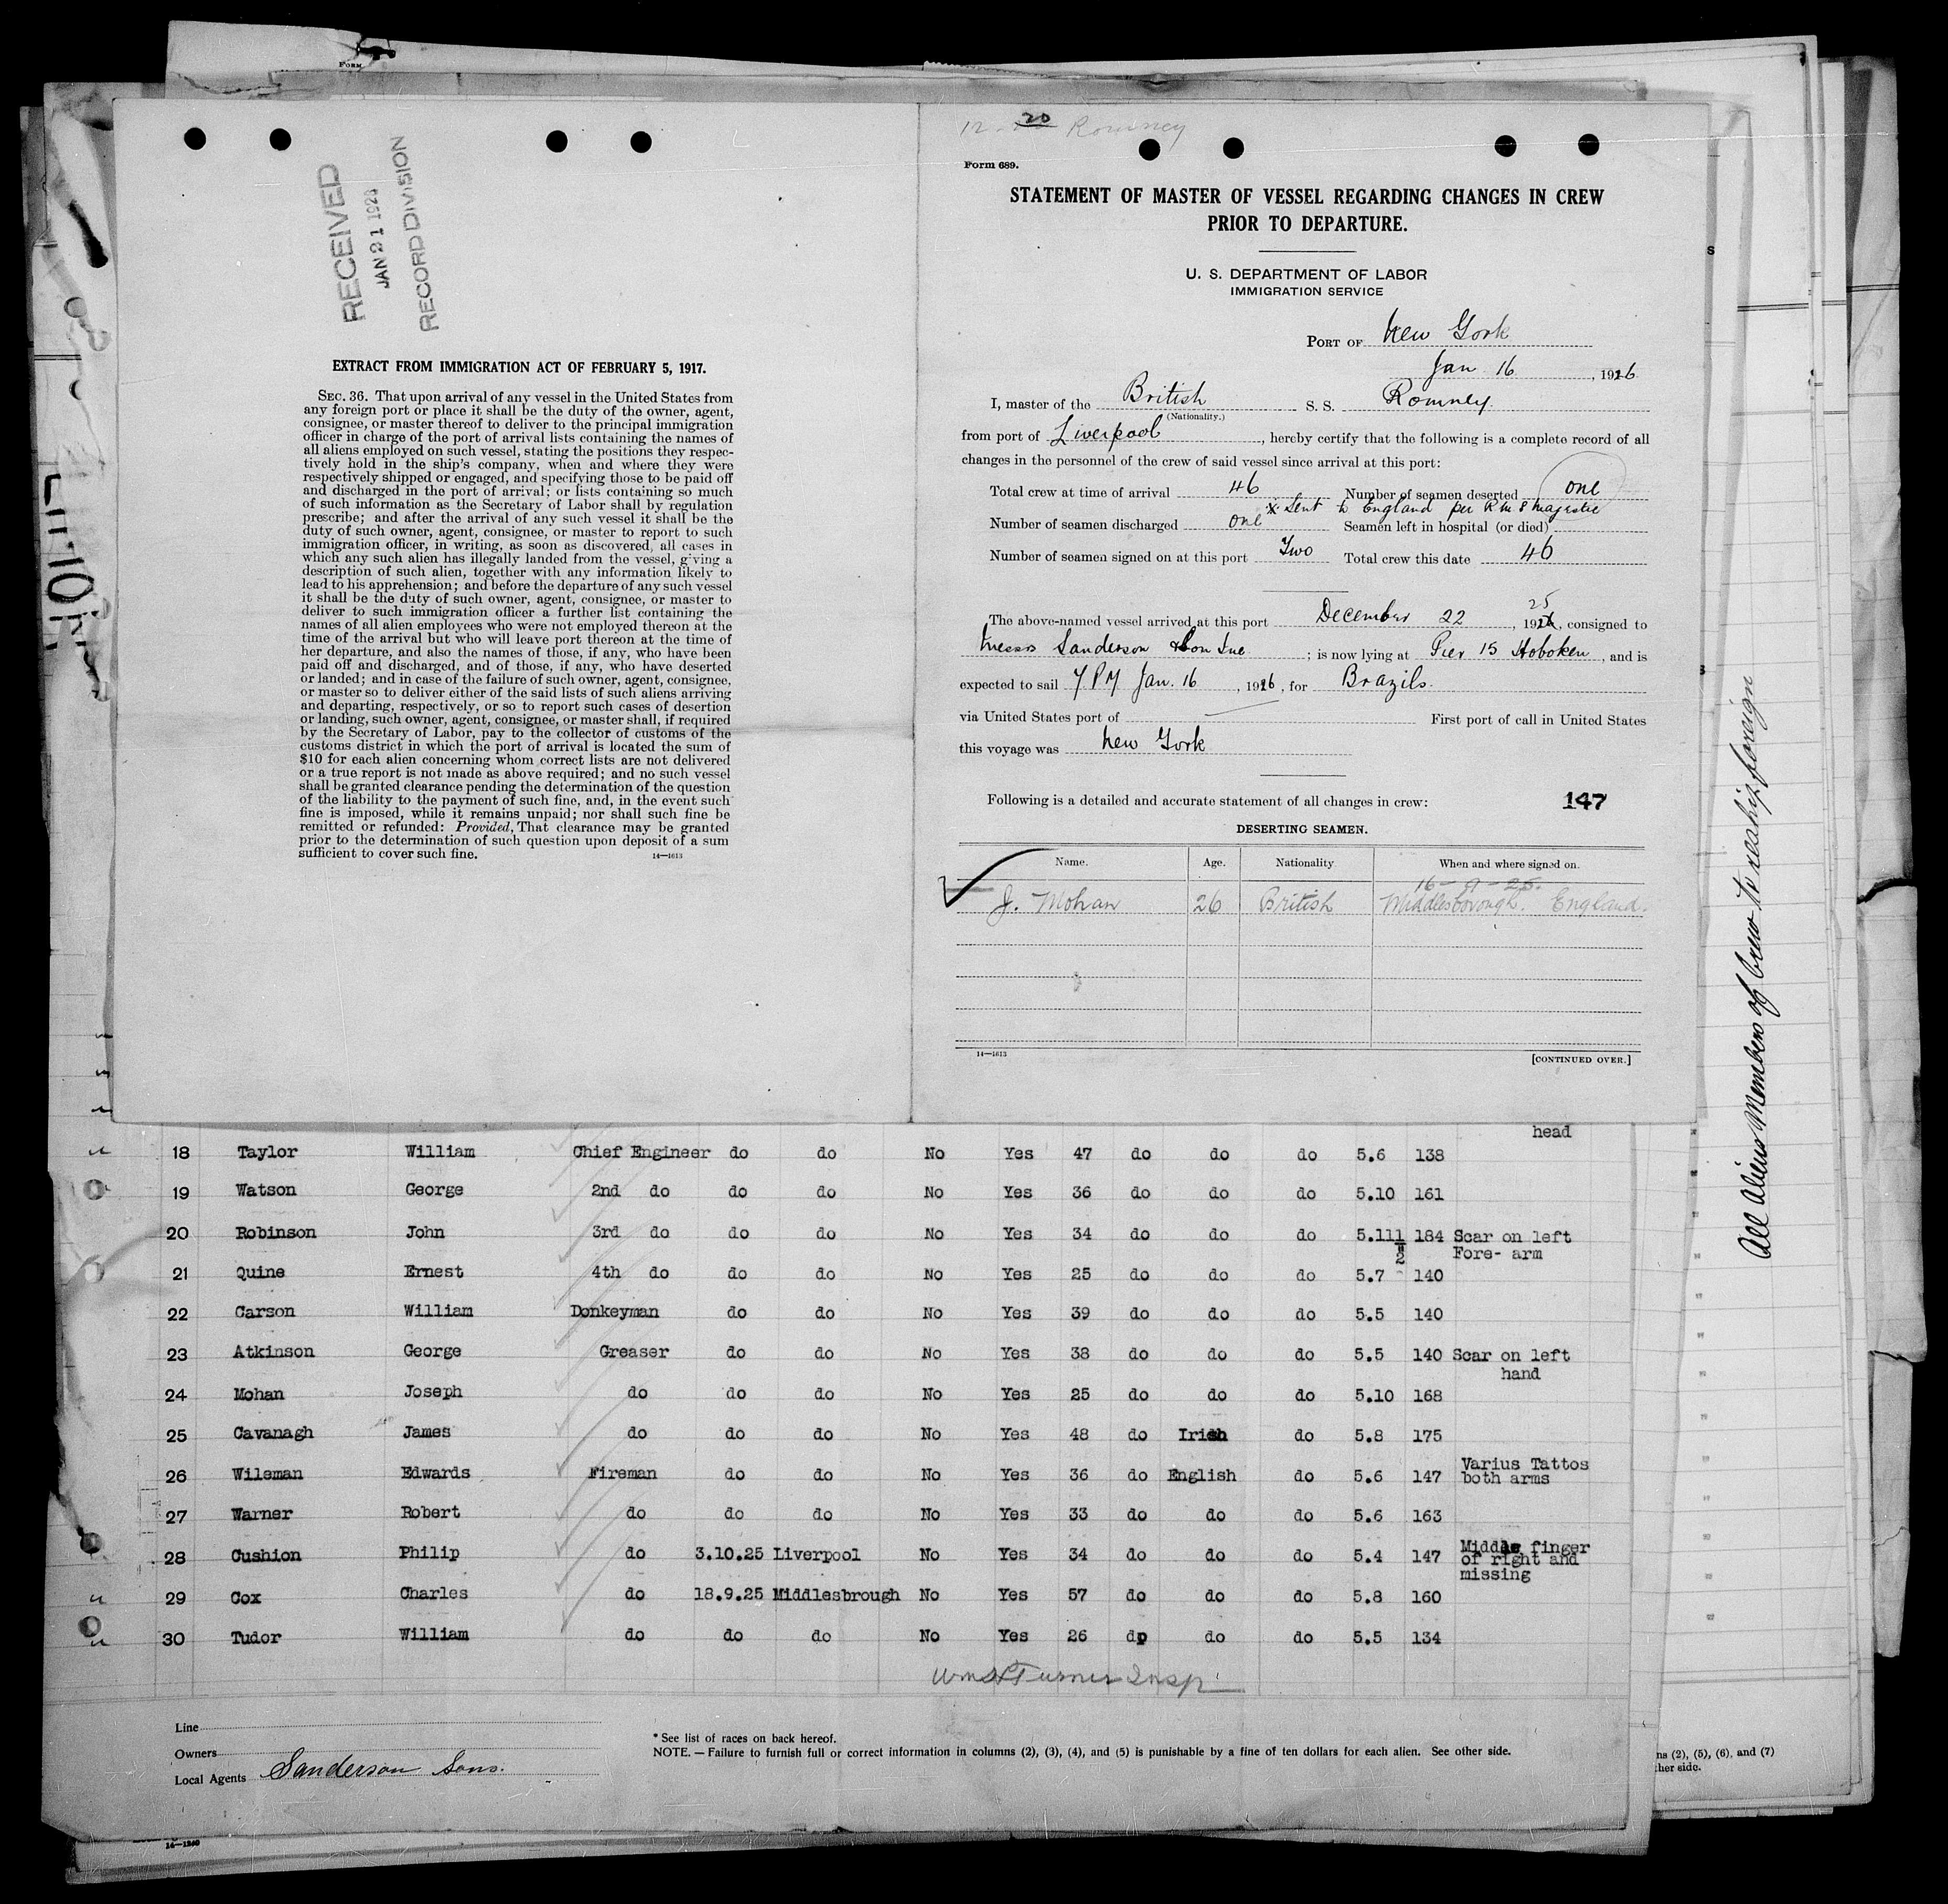 FORM
RECEIVED
JAN 21 1926
RECORD DIVISION
EXTRACT FROM IMMIGRATION ACT OF FEBRUARY 5, 1917.
SEC. 36. That upon arrival of any vessel in the United States from
any foreign port or place it shall be the duty of the owner, agent,
consignee, or master thereof to deliver to the principal immigration
officer in charge of the port of arrival lists containing the names of
all aliens employed on such vessel, stating the positions they respec-
tively hold in the ship's company, when and where they were
respectively shipped or engaged, and specifying those to be paid off
and discharged in the port of arrival; or lists containing so much
of such information as the Secretary of Labor shall by regulation
prescribe; and after the arrival of any such vessel it shall be the
duty of such owner, agent, consignee, or master to report to such
immigration officer, in writing, as soon as discovered, all cases in
which any such alien has illegally landed from the vessel, giving a
description of such alien, together with any information likely to
lead to his apprehension; and before the departure of any such vessel
it shall be the duty of such owner, agent, consignee, or master to
deliver to such immigration officer a further list containing the
names of all alien employees who were not employed thereon at the
time of the arrival but who will leave port thereon at the time of
her departure, and also the names of those, if any, who have been
paid off and discharged, and of those, if any, who have deserted
or landed; and in case of the failure of such owner, agent, consignee,
or master so to deliver either of the said lists of such aliens arriving
and departing, respectively, or so to report such cases of desertion
or landing, such owner, agent, consignee, or master shall, if required
by the Secretary of Labor, pay to the collector of customs of the
customs district in which the port of arrival is located the sum of
$10 for each alien concerning whom correct lists are not delivered
or a true report is not made as above required; and no such vessel
shall be granted clearance pending the determination of the question
of the liability to the payment of such fine, and, in the event such
fine is imposed, while it remains unpaid; nor shall such fine be
remitted or refunded: Provided, That clearance may be granted
prior to the determination of such question upon deposit of a sum
sufficient to cover such fine. 14—1613
20 Romney
Form 689.
STATEMENT OF MASTER OF VESSEL REGARDING CHANGES IN CREW
PRIOR TO DEPARTURE.
U. S. DEPARTMENT OF LABOR
IMMIGRATION SERVICE
PORT OF New York
Jan 16, 1926
I, master of the British S. S. Romney.
(Nationality.)
from port of Liverpool, hereby certify that the following is a complete record of all
changes in the personnel of the crew of said vessel since arrival at this port:
Total crew at time of arrival 46 Number of seamen deserted one
x Sent to England per R M S Majestic
Number of seamen discharged one x Seamen left in hospital (or died)
Number of seamen signed on at this port Two Total crew this date 46
The above-named vessel arrived at this port December 22, 1925, consigned to
Messrs Sanderson & Son Inc; is now lying at Pier 15 Hoboken, and is
expected to sail 7 PM Jan. 16, 1926, for Brazils.
via United States port of First port of call in United States
this voyage was New York
Following is a detailed and accurate statement of all changes in crew: 147
DESERTING SEAMEN.
Name. Age. Nationality When and where signed on.
16-9-25.
J. Mohan 26 British Middlesborough. England.
14—1613 [CONTINUED OVER.]
head
18 Taylor William Chief Engineer do do No Yes 47 do do do 5.6 138
19 Watson George 2nd do do do No Yes 36 do do do 5.10 161
20 Robinson John 3rd do do do No Yes 34 do do do 5.11 1/2 184 Scar on left
Fore- arm
21 Quine Ernest 4th do do do No Yes 25 do do do 5.7 140
22 Carson William Donkeyman do do No Yes 39 do do do 5.5 140
23 Atkinson George Greaser do do No Yes 38 do do do 5.5 140 Scar on left
hand
24 Mohan Joseph do do do No Yes 25 do do do 5.10 168
25 Cavanagh James do do do No Yes 48 do Irish do 5.8 175
26 Wileman Edwards Fireman do do No Yes 36 do English do 5.6 147 Varius Tattos
both arms
27 Warner Robert do do do No Yes 33 do do do 5.6 163
28 Cushion Philip do 3.10.25 Liverpool No Yes 34 do do do 5.4 147 Middle finger
of right and
missing
29 Cox Charles do 18.9.25 Middlesbrough No Yes 57 do do do 5.8 160
30 Tudor William do do do No Yes 26 dp do do 5.5 134
Wm H Turner Insp
Line
Owners
Local Agents Sanderson Sons.
* See list of races on back hereof.
NOTE. — Failure to furnish full or correct information in columns (2), (3), (4), and (5) is punishable by a fine of ten dollars for each alien. See other side.
14—1240
All Alien Members of Crew to reship foreign
ns (2), (5), (6), and (7)
ther side.